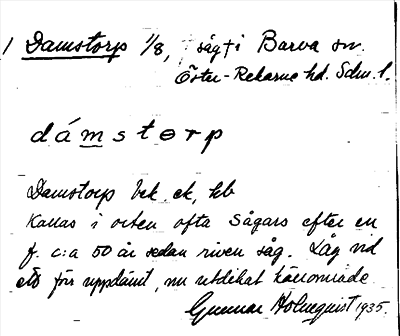 1 Damstorp 1/8, sågt i Barva sn.
Öster-Rekarne hd. Sdm. l.
dámstɵrp
Damstorp Ek. ek, hb
Kallas i orten ofta Sågars efter en
f. c:a 50 år sedan riven såg. Låg vid
ett för uppdämt, nu utdikat kärrområde
Gunnar Holmquist 1935.